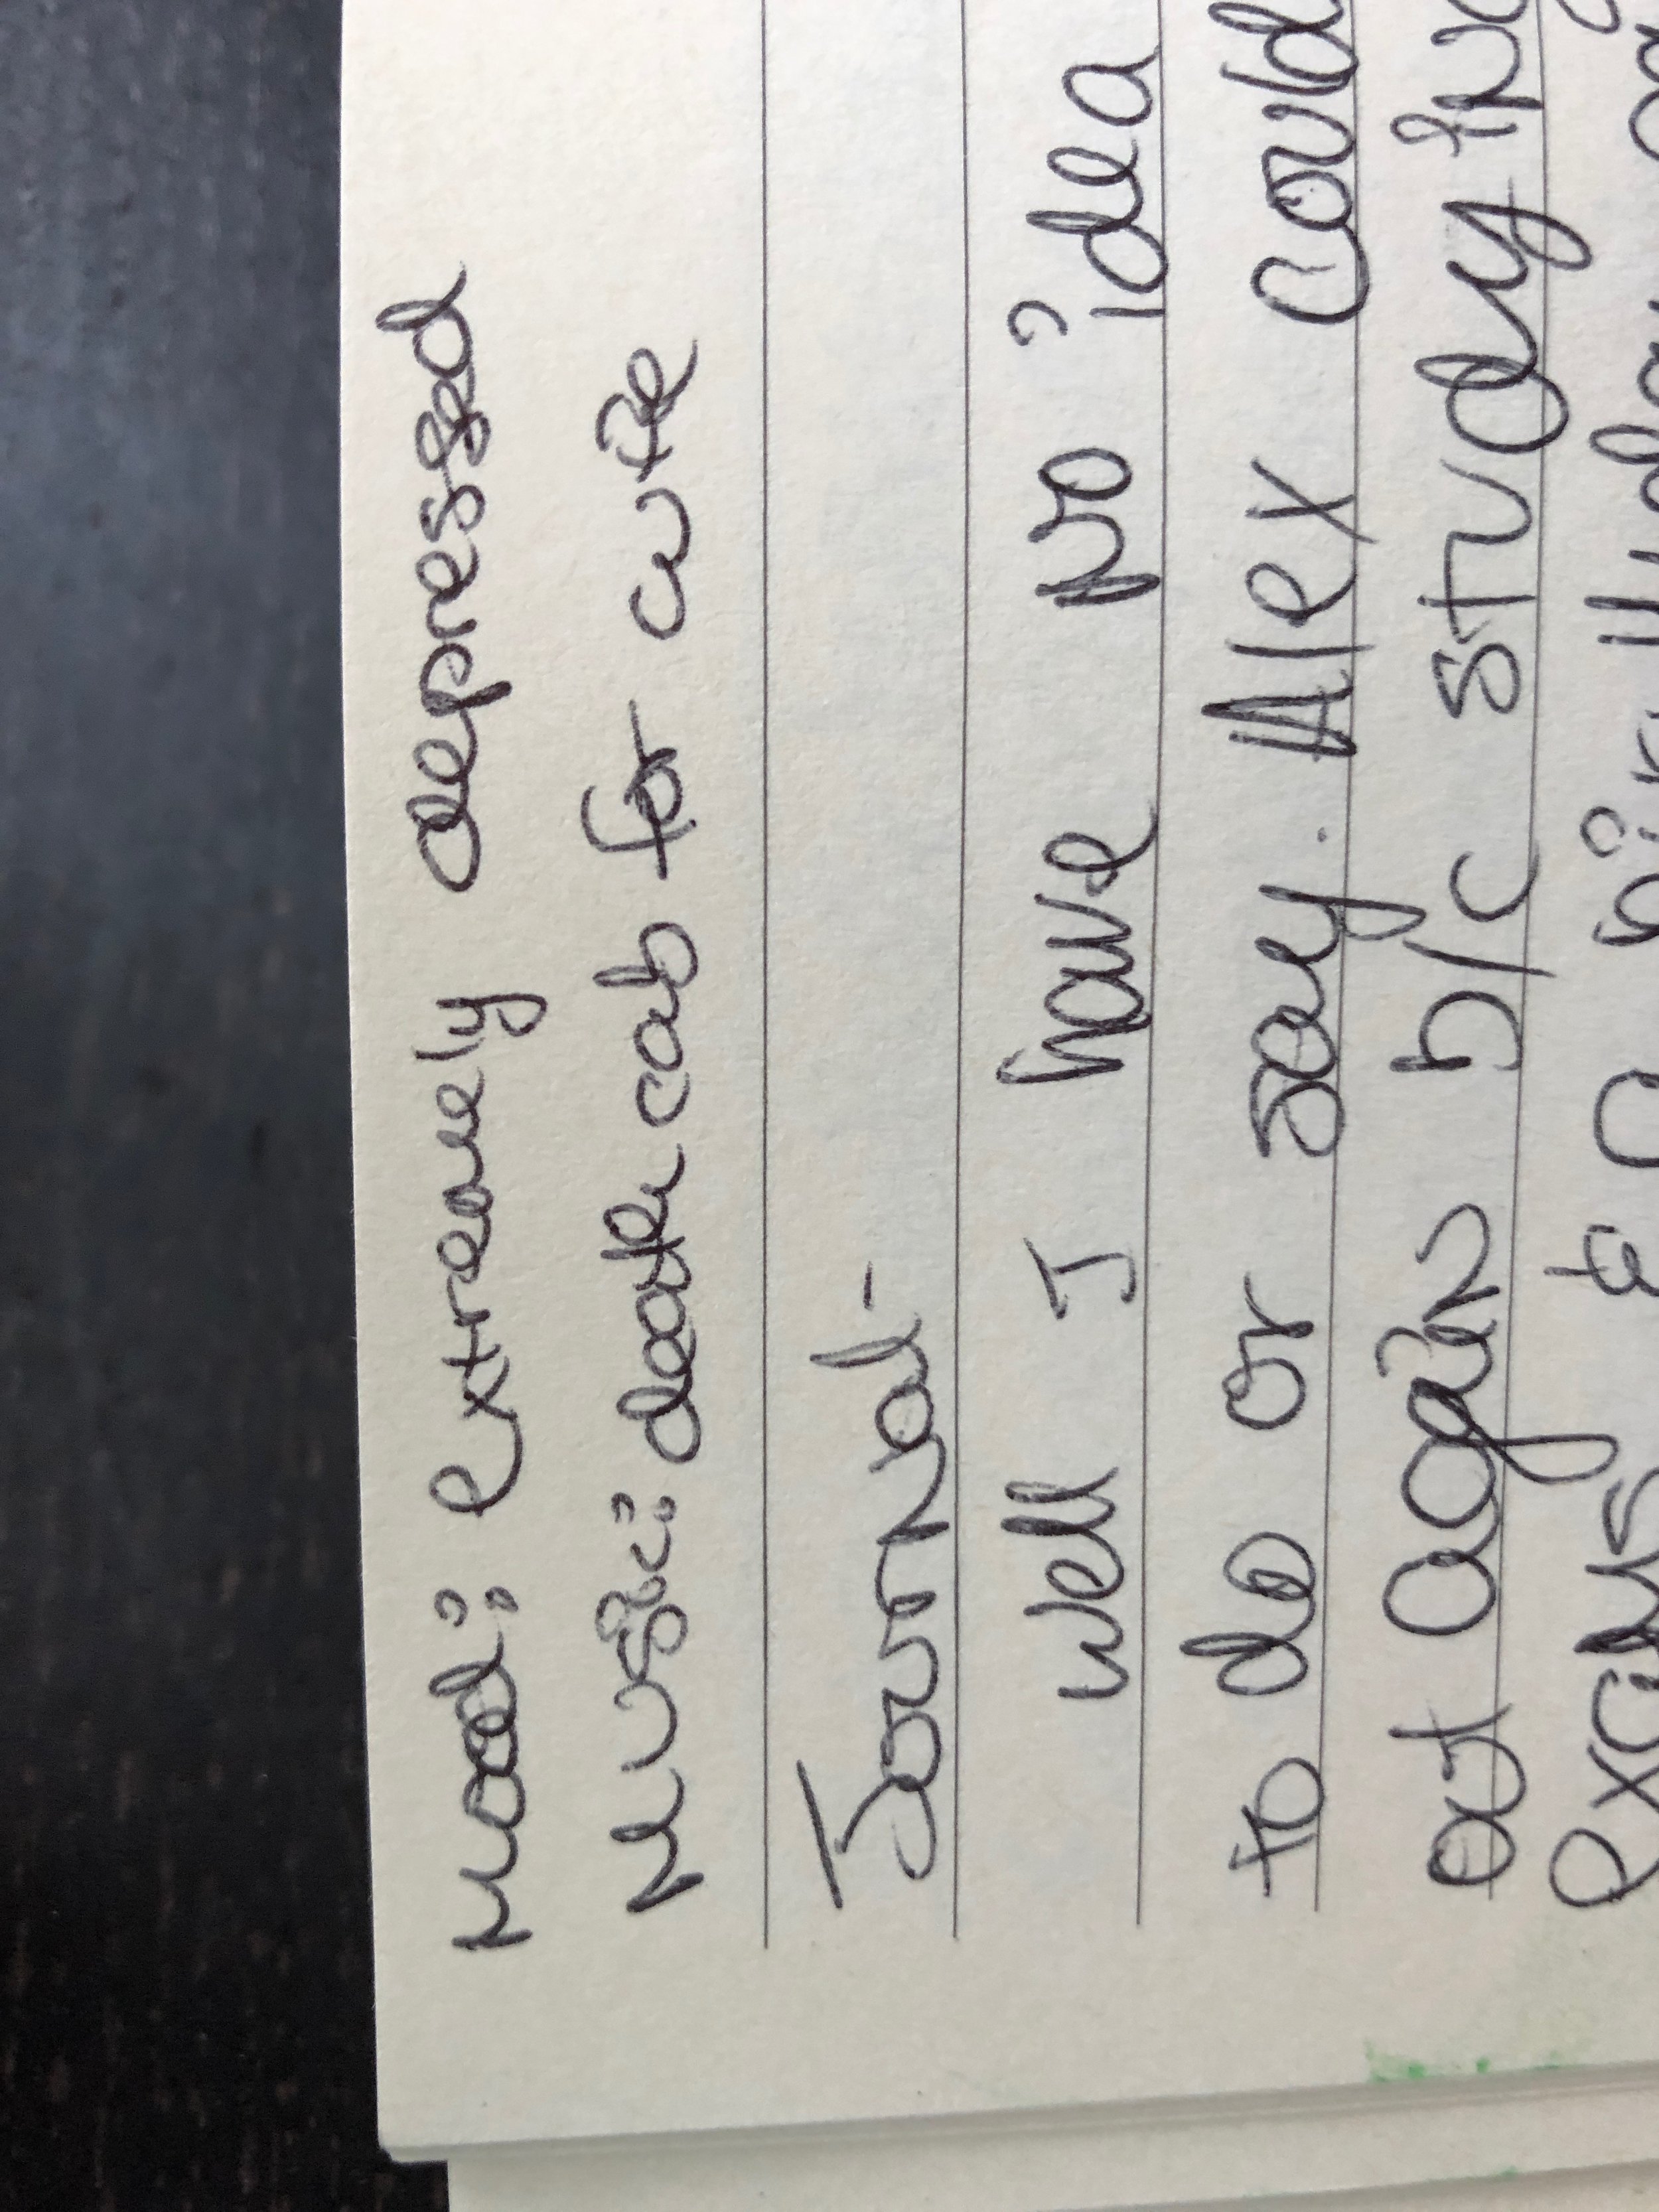 mood: extremely depressed
music: death cab for cutie
Journal-
well I have no idea
to do or say. Alex could
out again b/c studying
exams & a birthday